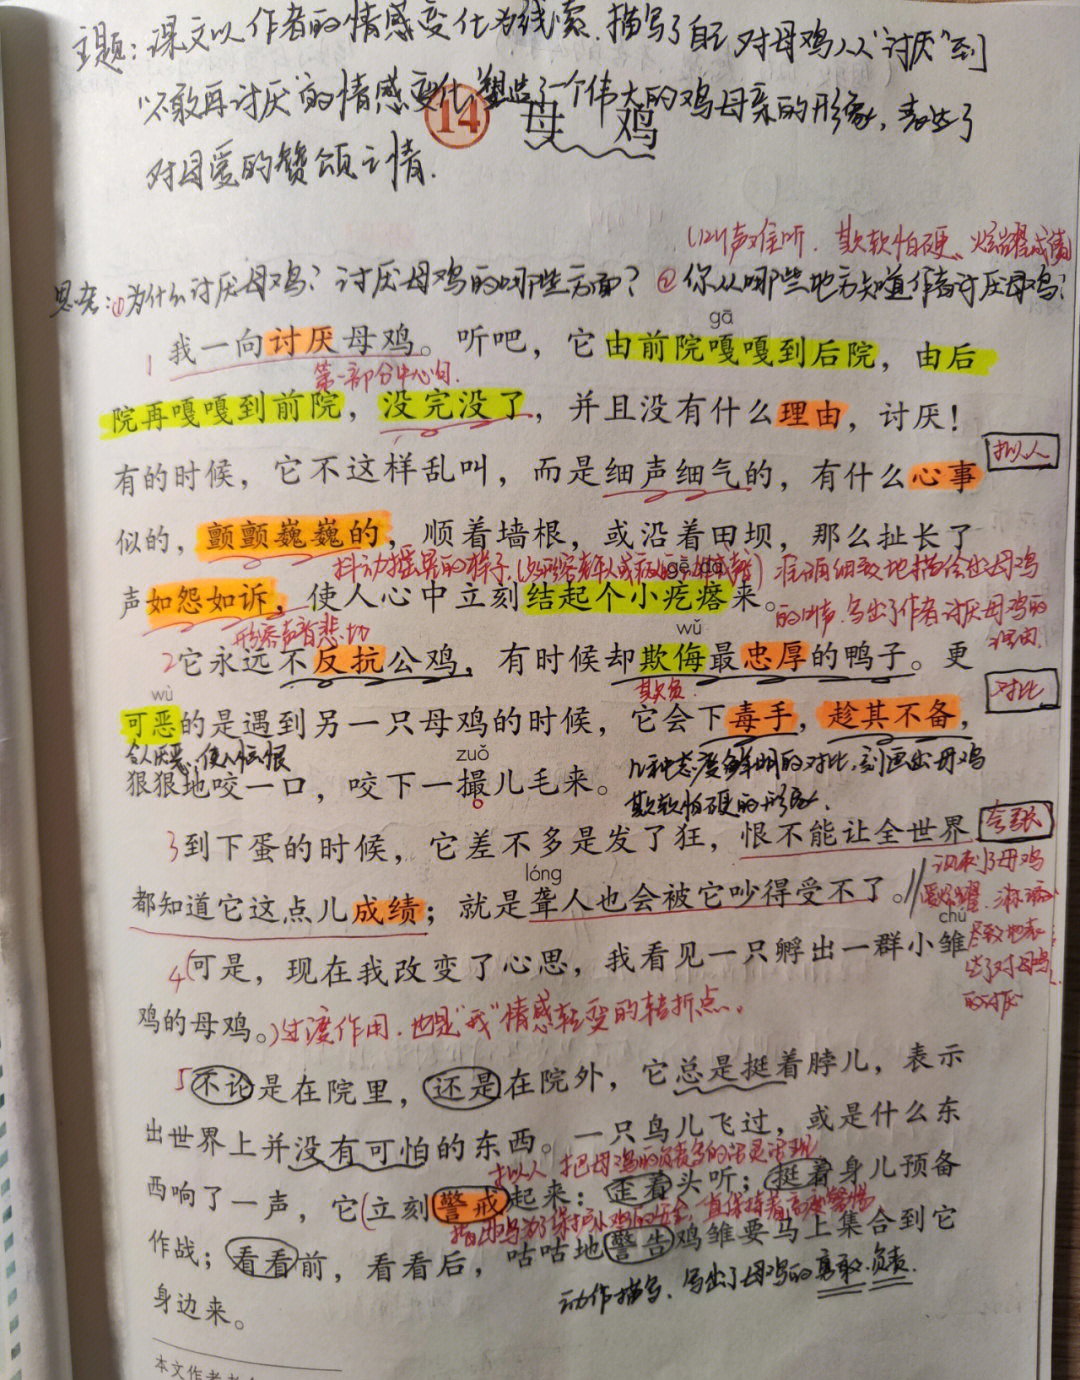 主题:课文以作者的情感变化为线索.描写了自己对母鸡从“讨厌”到
“不敢再讨厌”的情感变化,塑造了一个伟大的鸡母亲的形象,表达了
对母爱的赞颂之情.
14 母鸡
叫声难听.欺软怕硬、炫耀成绩
思考:①为什么讨厌母鸡?讨厌母鸡的哪些方面?②你从哪些地方知道作者讨厌母鸡?
gā
1 我一向讨厌母鸡。听吧,它由前院嘎嘎到后院,由后
第一部分中心句.
院再嘎嘎到前院,没完没了,并且没有什么理由,讨厌!
拟人
有的时候,它不这样乱叫,而是细声细气的,有什么心事
似的,颤颤巍巍的,顺着墙根,或沿着田坝,那么扯长了
抖动摇晃的样子 准确细致地描绘出母鸡
gē da
声如怨如诉,使人心中立刻结起个小疙瘩来。
的叫声.写出了作者讨厌母鸡的
形容声音悲切
理由.
wǔ
2它永远不反抗公鸡,有时候却欺侮最忠厚的鸭子。更
欺负
对比
wù
可恶的是遇到另一只母鸡的时候,它会下毒手,趁其不备,
令人厌恶,使人恼恨
zuǒ
几种态度鲜明的对比,刻画出母鸡
狠狠地咬一口,咬下一撮儿毛来。
欺软怕硬的形象.
3到下蛋的时候,它差不多是发了狂,恨不能让全世界
夸张
讽刺了母鸡
lóng
都知道它这点儿成绩;就是聋人也会被它吵得受不了。
爱炫耀.淋漓
chú
尽致地表
4(可是,现在我改变了心思,我看见一只孵出一群小雏
达了对母鸡
的讨厌
鸡的母鸡。)过渡作用.也是“我”情感转变的转折点.
5不论是在院里,还是在院外,它总是挺着脖儿,表示
出世界上并没有可怕的东西。一只鸟儿飞过,或是什么东
拟人 把母鸡的负责写的活灵活现
西响了一声,它(立刻警戒起来:歪着头听;挺着身儿预备
作战;看看前,看看后,咕咕地警告鸡雏要马上集合到它
动作描写.写出了母鸡的勇敢.负责.
身边来。
本文作者